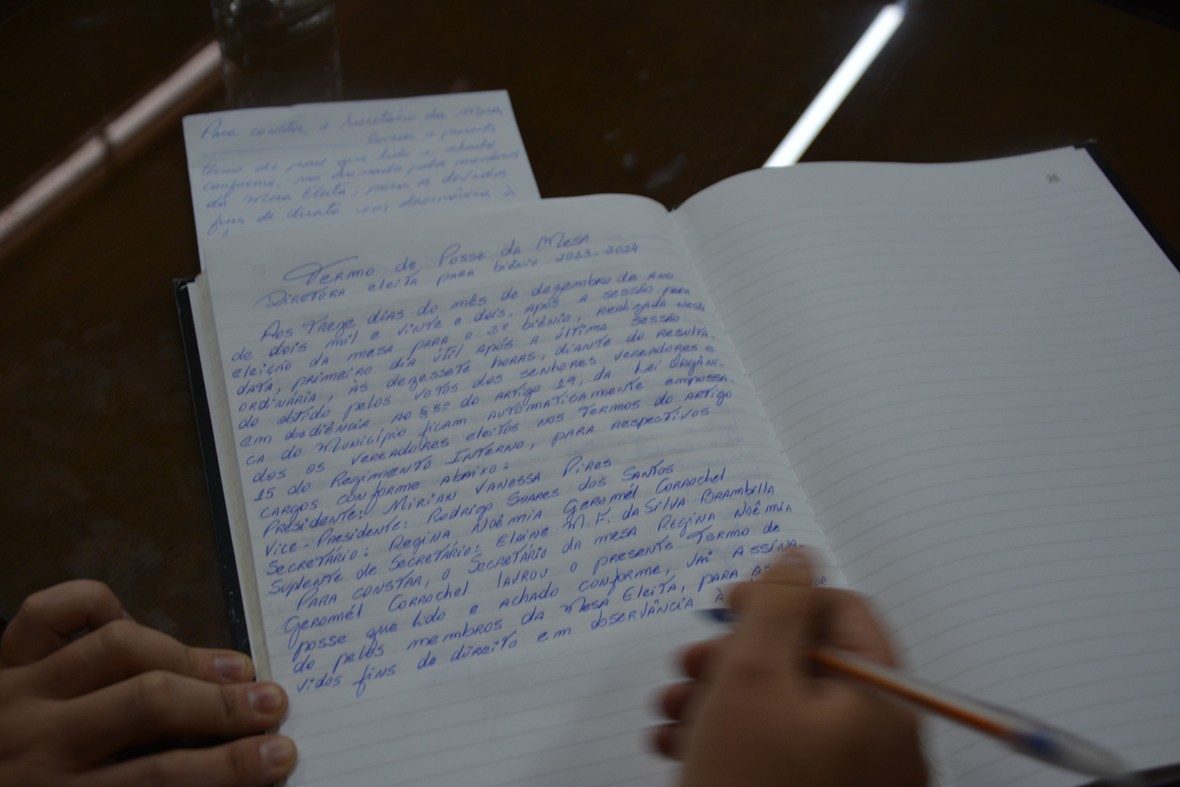 Para constar, o Secretário da Mesa
lavrou o presente
termo de posse que lido e achado
conforme, vai assinado pelos membros
da Mesa Eleita, para os devidos
fins de direito em observância à
26
Termo de Posse da Mesa
Diretora eleita para biênio 2023-2024
Aos treze dias do mês de dezembro de ano
de dois mil e vinte e dois, após a sessão para
eleição da mesa para o 2º biênio, realizada nesta
data, primeiro dia útil após a última sessão
ordinária, às dezessete horas, diante do resulta-
do obtido pelos votos dos senhores vereadores e
em obediência ao § 5º do artigo 19, da Lei Orgâni-
ca do Município ficam automaticamente empossa-
dos os vereadores eleitos nos termos do artigo
15 do Regimento Interno, para respectivos
cargos conforme abaixo:
Presidente: Mirian Vanessa Pires
Vice-Presidente: Rodrigo Soares dos Santos
Secretário: Regina Noêmia Geromél Corrochel
Suplente de Secretário: Elaine M. F. da Silva Brambilla
Para constar, o Secretário da mesa Regina Noêmia
Geromél Corrochel lavrou o presente Termo de
posse que lido e achado conforme, vai assina-
do pelos membros da Mesa Eleita, para os de
vidos fins de direito em observância à